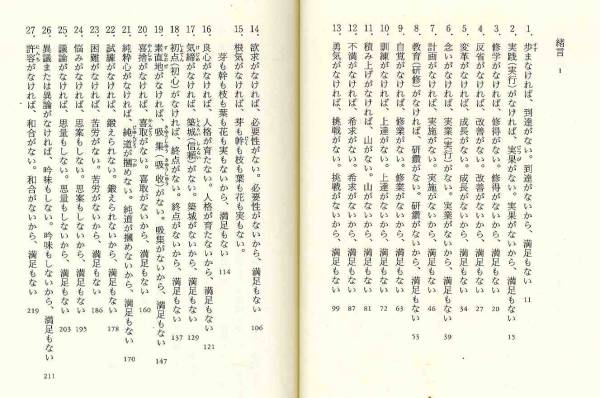 緒言 1
1. 歩まなければ、到達がない。到達がないから、満足もない 11
2. 実践(実行)がなければ、実果がない。実果がないから、満足もない 15
3. 修学がなければ、修得がない。修得がないから、満足もない 20
4. 反省がなければ、改善がない。改善がないから、満足もない 27
5. 変革がなければ、成長がない。成長がないから、満足もない 34
6. 念いがなければ、実業(実行)がない。実業がないから、満足もない 39
7. 計画がなければ、実施がない。実施がないから、満足もない 46
8. 教育(研修)がなければ、研鑽がない。研鑽がないから、満足もない 53
9. 自覚がなければ、修業がない。修業がないから、満足もない 63
10. 訓練がなければ、上達がない。上達がないから、満足もない 72
11. 積み上げがなければ、山がない。山がないから、満足もない 81
12. 不満がなければ、希求がない。希求がないから、満足もない 87
13. 勇気がなければ、挑戦がない。挑戦がないから、満足もない 99
14. 欲求がなければ、必要性がない。必要性がないから、満足もない 106
15. 根気がなければ、芽も幹も枝も葉も花も実もない。
芽も幹も枝も葉も花も実もないから、満足もない 114
16. 良心がなければ、人格が育たない。人格が育たないから、満足もない 121
17. 気締がなければ、築城(信頼)がない。築城がないから、満足もない 129
18. 初点(初心)がなければ、終点がない。終点がないから、満足もない 137
19. 素直地がなければ、吸集(吸収)がない。吸集がないから、満足もない 147
20. 喜捨がなければ、喜取がない。喜取がないから、満足もない 160
21. 純粋心がなければ、純道が摑めない。純道が摑めないから、満足もない 170
22. 試煉がなければ、鍛えられない。鍛えられないから、満足もない 178
23. 困難がなければ、苦労がない。苦労がないから、満足もない 186
24. 悩みがなければ、思案もしない。思案もしないから、満足もない 195
25. 議論がなければ、思量もしない。思量もしないから、満足もない 203
26. 異議または異論がなければ、吟味もしない。吟味もしないから、満足もない 211
27. 許容がなければ、和合がない。和合がないから、満足もない 219